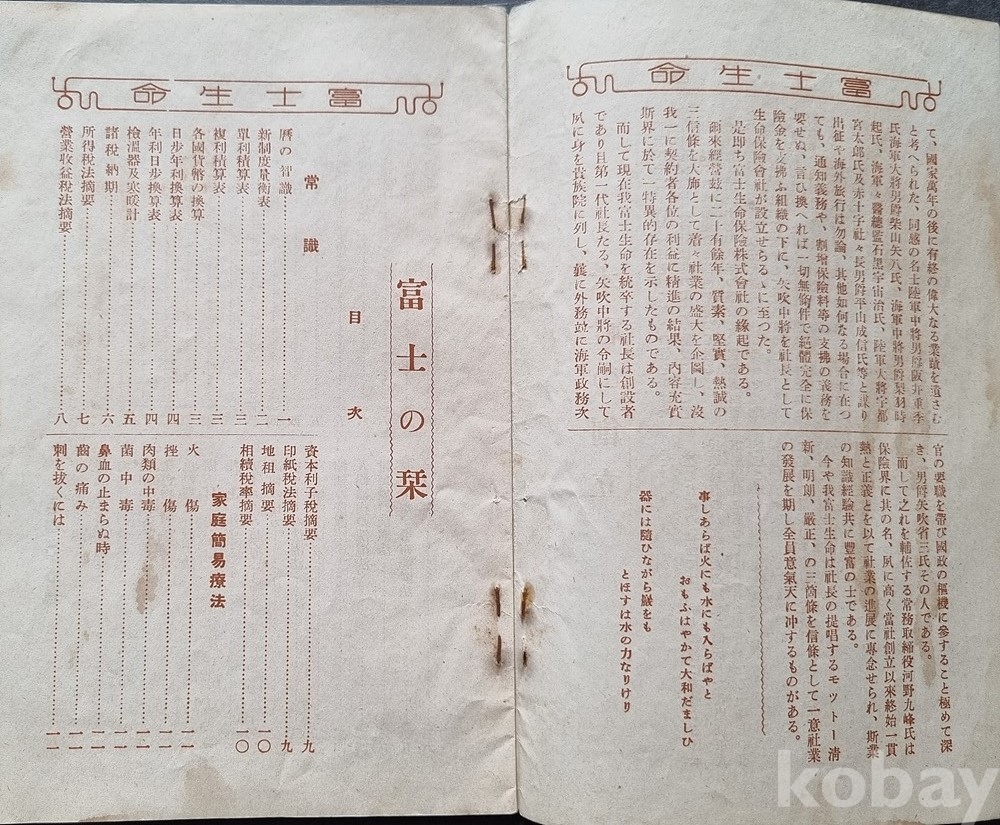 富士生命
て、國家萬年の後に有終の偉大なる業蹟を遺さむ
と考へられた、同感の名士陸軍中將男爵阪井重季
氏海軍大將男爵柴山矢八氏、海軍中將男爵梨羽時
起氏、海軍々醫總監石黑宇宙治氏、陸軍大將宇都
宮太郎氏及赤十字社々長男爵平山成信氏等と謀り
出征や海外旅行は勿論、其他如何なる場合に在つ
ても、通知義務や、割增保險料等の支拂の義務を
要せぬ、言ひ換へれば一切無條件で絕體完全に保
險金を支拂ふ組織の下に、矢吹中將を社長として
生命保險會社が設立せらるゝに至つた。
是即ち富士生命保險株式會社の緣起である。
爾來經營玆に二十有餘年、質素、堅實、熱誠の
三信條を大旆として着々社業の盛大を企圖し、沒
我一に契約者各位の利益に精進の結果、內容充實
斯界に於て一特異的存在を示したものである。
而して現在我富士生命を統卒する社長は創設者
であり且第一代社長たる、矢吹中將の令嗣にして
夙に身を貴族院に列し、曩に外務竝に海軍政務次
官の要職を帶び國政の樞機に參すること極めて深
き、男爵矢吹省三氏その人である。
而して之れを輔佐する常務取締役河野九峰氏は
保險界に其の名、夙に高く當社創立以來終始一貫
熱と正義とを以て社業の進展に專念せられ、斯業
の知識經驗共に豐富の士である。
今や我富士生命は社長の提唱するモットー淸
新、明朗、嚴正、の三箇條を信條として一意社業
の發展を期し全員意氣天に冲するものがある。
事しあらば火にも水にも入らばやと
おもふはやがて大和だましひ
器には隨ひながら巖をも
とほすは水の力なりけり
富士生命
富士の栞
目次
常識
曆の智識……一
新制度量衡表……二
單利積算表……三
複利積算表……三
各國貨幣の換算……三
日步年利換算表……四
年利日步換算表……四
檢溫器及寒暖計……五
諸稅納期……六
所得稅法摘要……七
營業收益稅法摘要……八
資本利子稅摘要……九
印紙稅法摘要……九
地租摘要……一〇
相續稅率摘要……一〇
家庭簡易療法
火傷……一一
挫傷……一一
肉類の中毒……一一
菌中毒……一一
鼻血の止まらぬ時……一一
齒の痛み……一一
刺を拔くには……一一
kobay